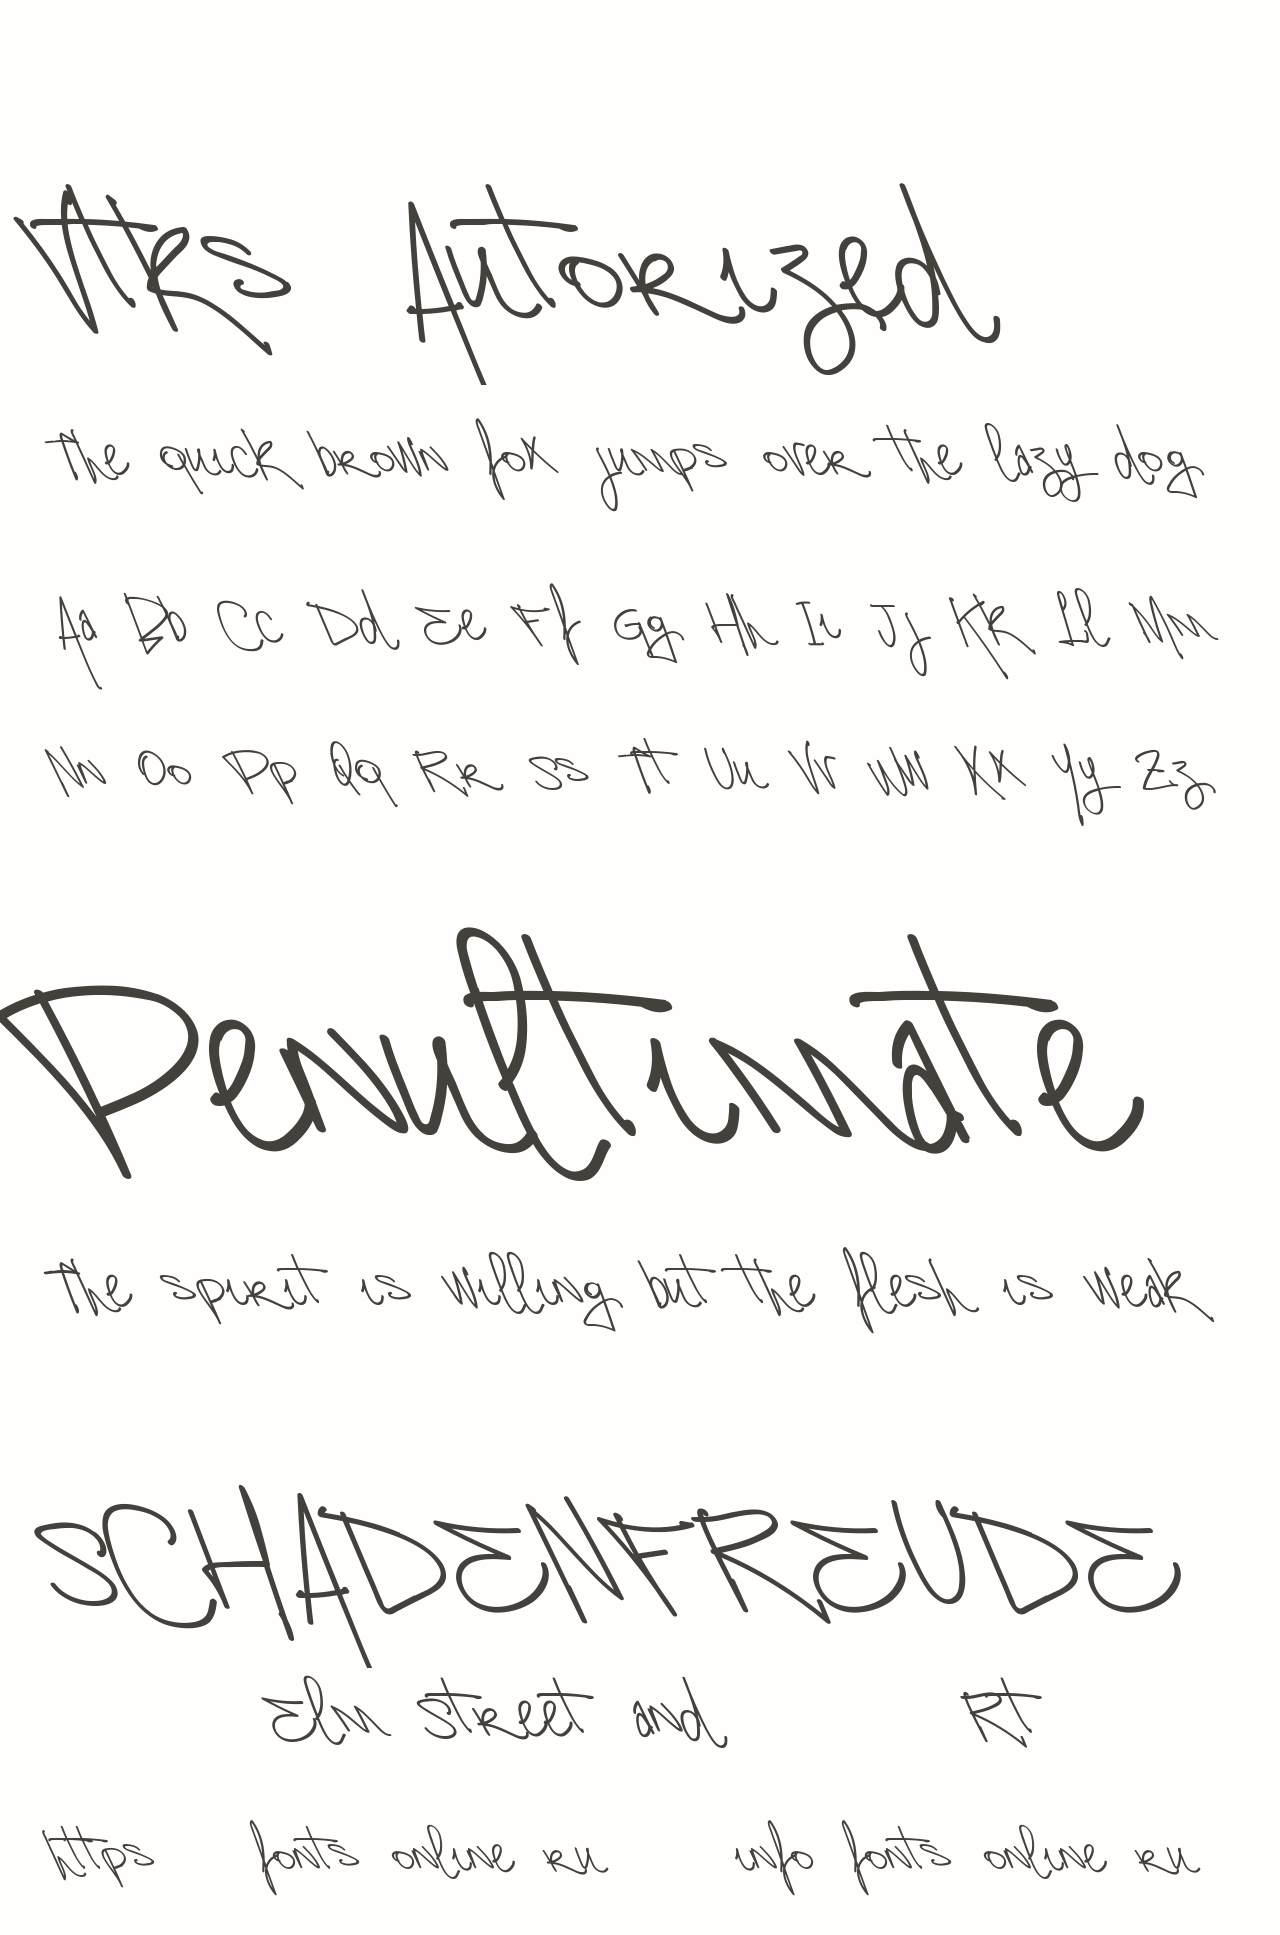 Vtks Autorized
the quick brown fox jumps over the lazy dog
Aa Bb Cc Dd Ee Ff Gg Hh Ii Jj Kk Ll Mm
Nn Oo Pp Qq Rr Ss Tt Uu Vv Ww Xx Yy Zz
Penultimate
the spirit is willing but the flesh is weak
SCHADENFREUDE
Elm Street and Rt
https fonts online ru info fonts online ru